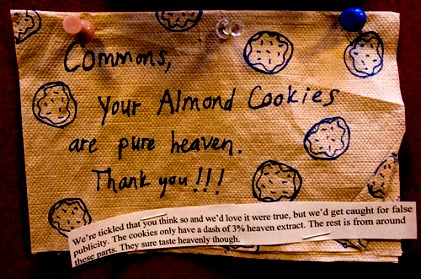 Commons,
your Almond Cookies
are pure heaven.
Thank you!!!
We're tickled that you think so and we'd love it were true, but we'd get caught for false
publicity. The cookies only have a dash of 3% heaven extract. The rest is from around
these parts. They sure taste heavenly though.